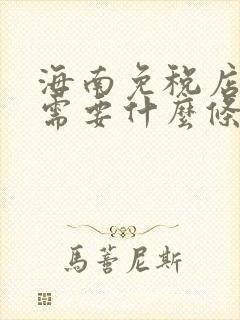 海南免稅店
需要什麼條
馬蒼尼斯